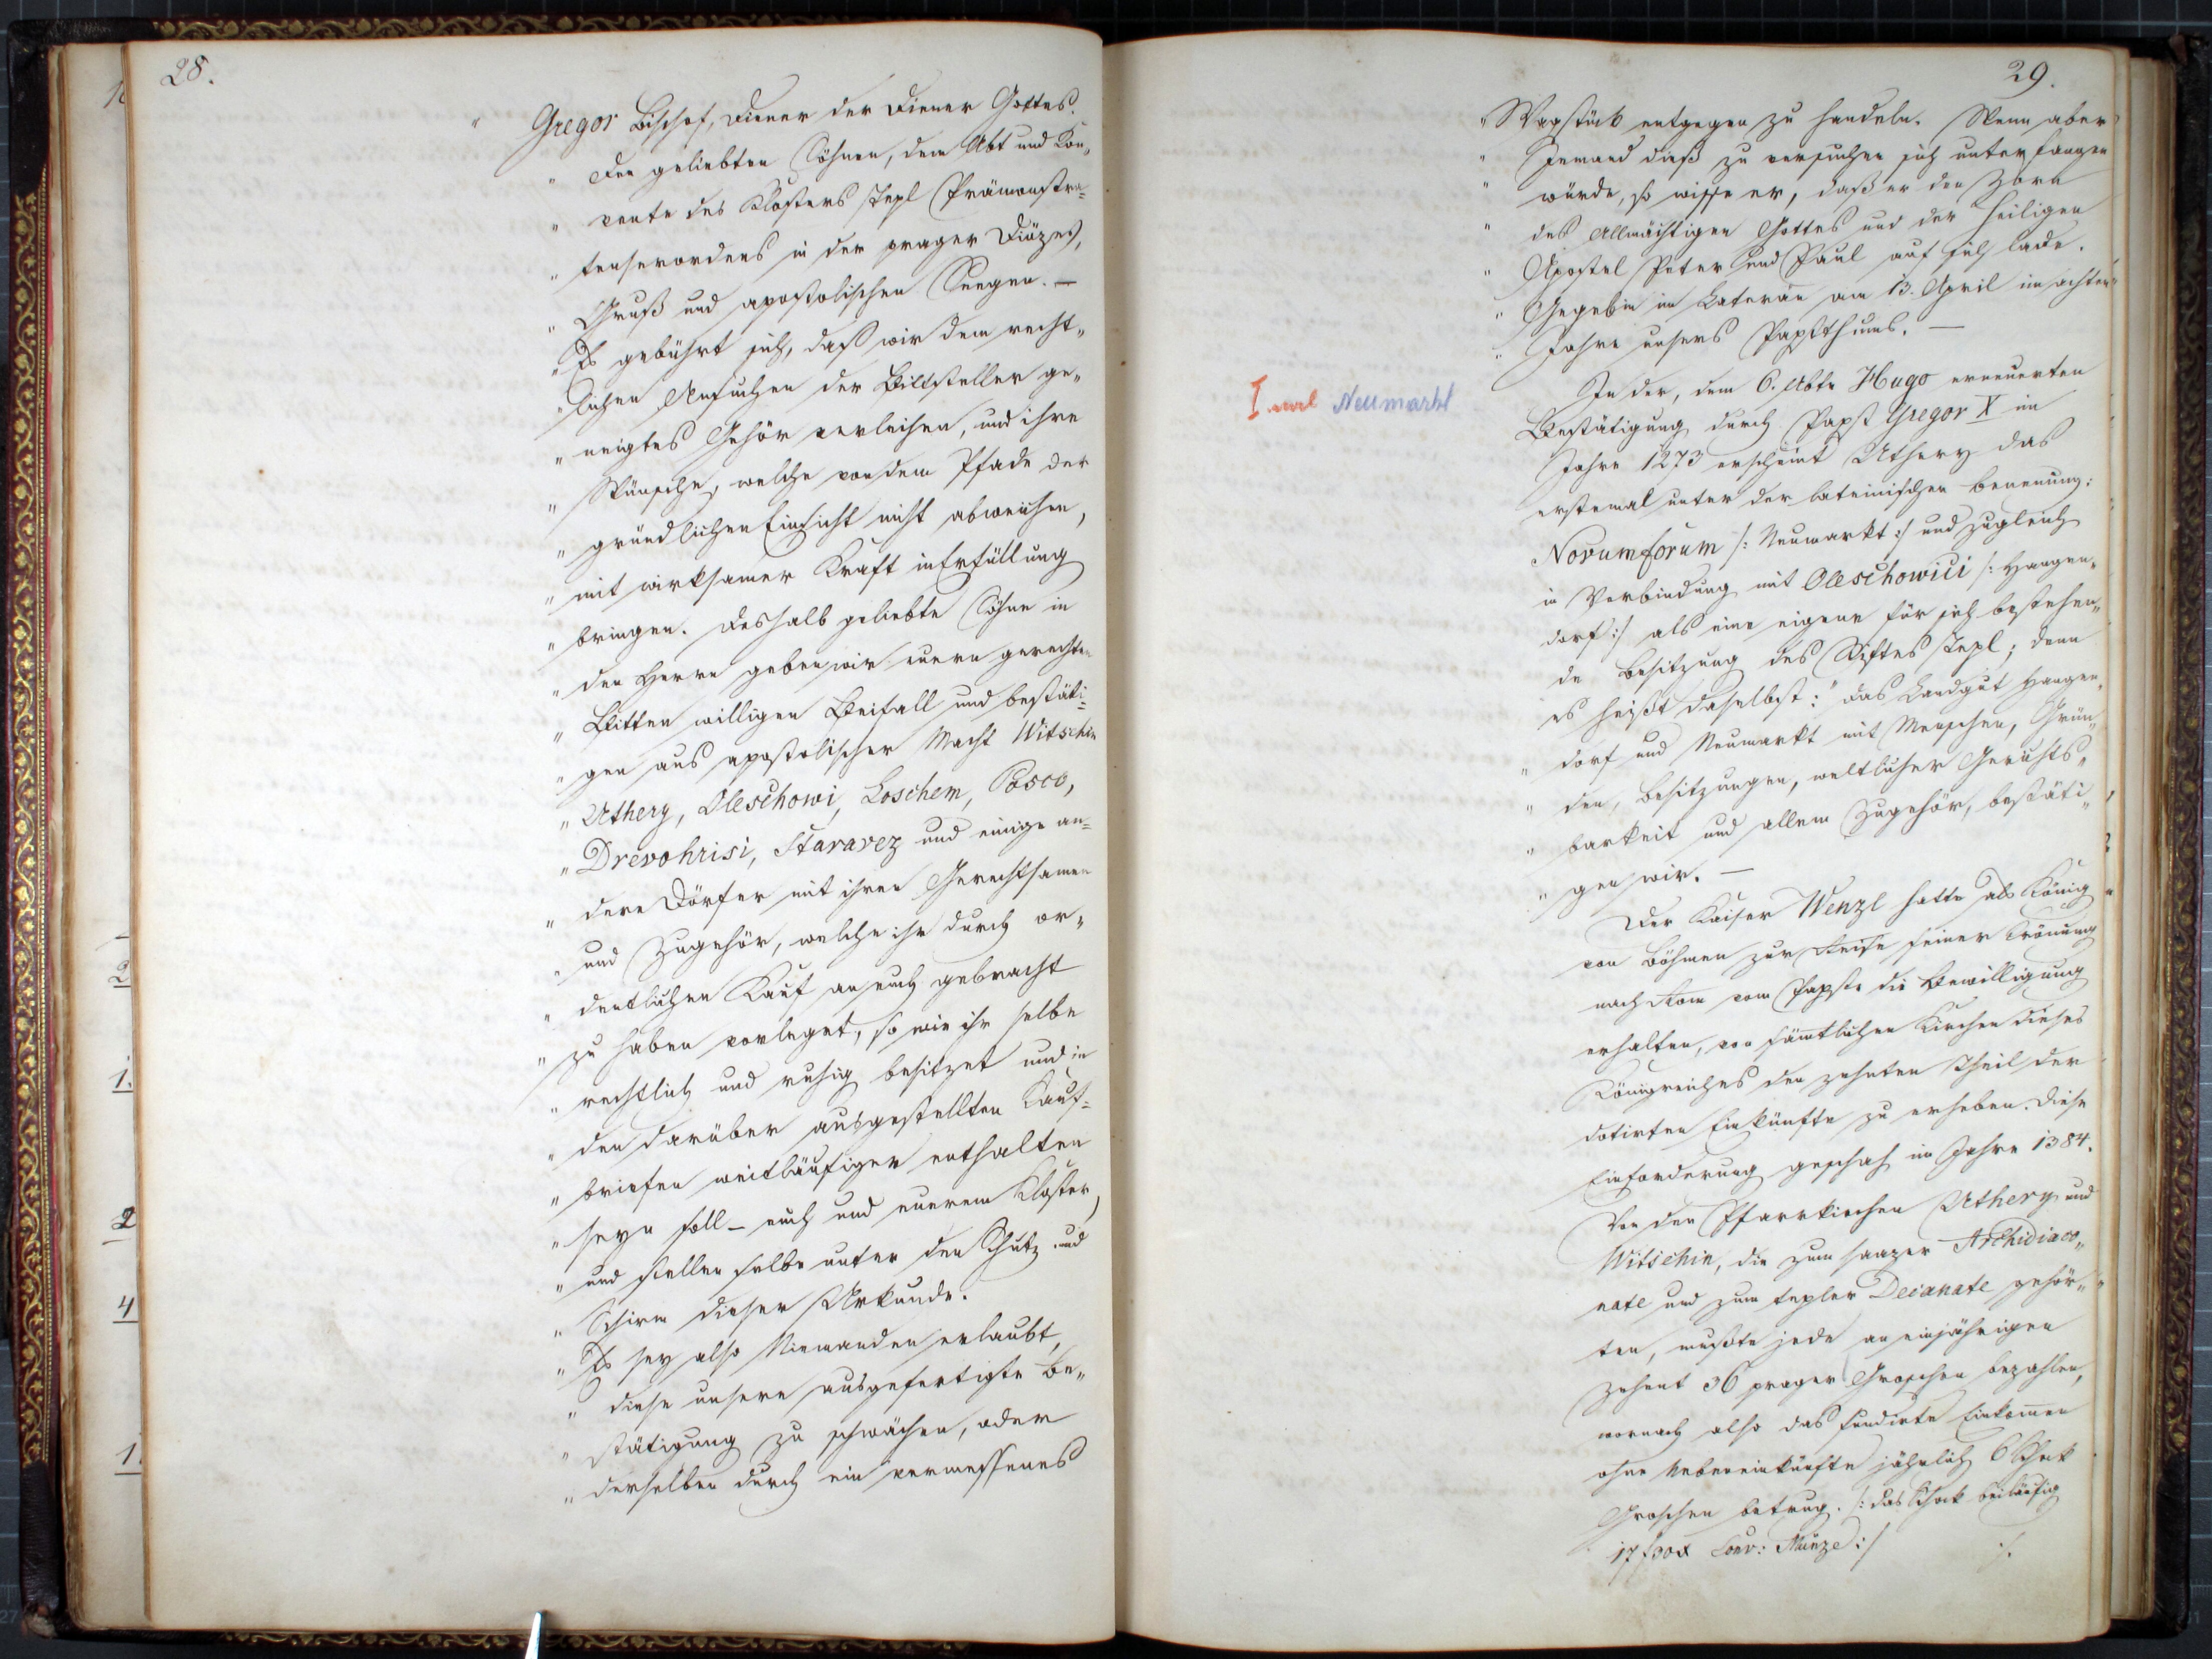 28.
" Gregor Bischof, Diener der Diener Gottes.
" Den geliebten Söhnen, dem Abt und Kon„
" vente des Klosters Tepl Prämonstra„
" tenserordens in der prager Diözes,
" Gruß und apostolischen Seegen. —
" Es gebührt sich, daß wir dem recht„
" lichen Ansuchen der Bittsteller ge„
" neigtes Gehör verleihen, und ihre
" Wünsche, welche von dem Pfade der
" gründlichen Einsicht nicht abweichen,
" mit wirksamer Kraft in Erfüllung
" bringen. Deshalb geliebte Söhne in
" den Herrn geben wir euern gerechten
" Bitten willigen Beifall und bestäti=
" gen aus apostolischer Macht Witschin
" Uthery, Oleschowi, Loschem, Posco,
" Drevohrisi, Staravez und einige an=
" dere Dörfer mit ihren Gerechtsamen
" und Zugehör, welche ihr durch or„
" dentlichen Kauf an euch gebracht
" zu haben vorleget, so wie ihr selbe
" rechtlich und ruhig besitzet und in
" den darüber ausgestellten Kauf=
" briefen weitläufiger enthalten
" seyn soll – euch und euerem Kloster,
" und stellen selbe unter den Schutz und
" Schirm dieser Urkunde.
" Es sey also Niemanden erlaubt,
" diese unsere ausgefertigte Be„
" stätigung zu schwächen, oder
" derselben durch ein vermessenes
29.
" Wagstück entgegen zu handeln. Wenn aber
" Jemand dieß zu versuchen sich unterfangen
" würde, so wisse er, daß er den Zorn
" des Allmächtigen Gottes und der heiligen
" Apostel Peter und Paul auf sich lade.
" Gegeben im Lateran am 13. April im achten
" Jahre unsers Papstthums. —
In der, dem 6. Abte Hugo erneuerten
I. Neumarkt
Bestätigung durch Papst Gregor X im
Jahre 1273 erscheint Uthery das
erstemal unter der lateinischen Benennung:
Novumforum /: Neumarkt :/ und zugleich
in Verbindung mit Oleschowici /: Hangen„
dorf :/ als eine eigene für sich bestehen„
de Besitzung des Stiftes Tepl; denn
es heißt daselbst: " das Landgut Hangen„
" dorf und Neumarkt mit Menschen, Grün„
" den, Besitzungen, weltlicher Gerichts„
" barkeit und allem Zugehör, bestäti„
" gen wir. —
Der Kaiser Wenzl hatte als König
von Böhmen zur Reise seiner Krönung
nach Rom vom Papste die Bewilligung
erhalten, von sämtlichen Kirchen dieses
Königreiches den zehnten Theil der
dotirten Einkünfte zu erheben. Diese
Einforderung geschah im Jahre 1384.
Von den Pfarrkirchen Uthery und
Witschin, die zum saazer Archidiaco„
nate und zum tepler Decanate gehör„
ten, mußte jede an einjährigen
Zehent 36 prager Groschen bezahlen,
wornach also das fundirte Einkomen
ohne Nebeneinkünfte jährlich 6 Schok
Groschen betrug. /: das Schok beiläufig
17 f 30 x Conv: Münze :/